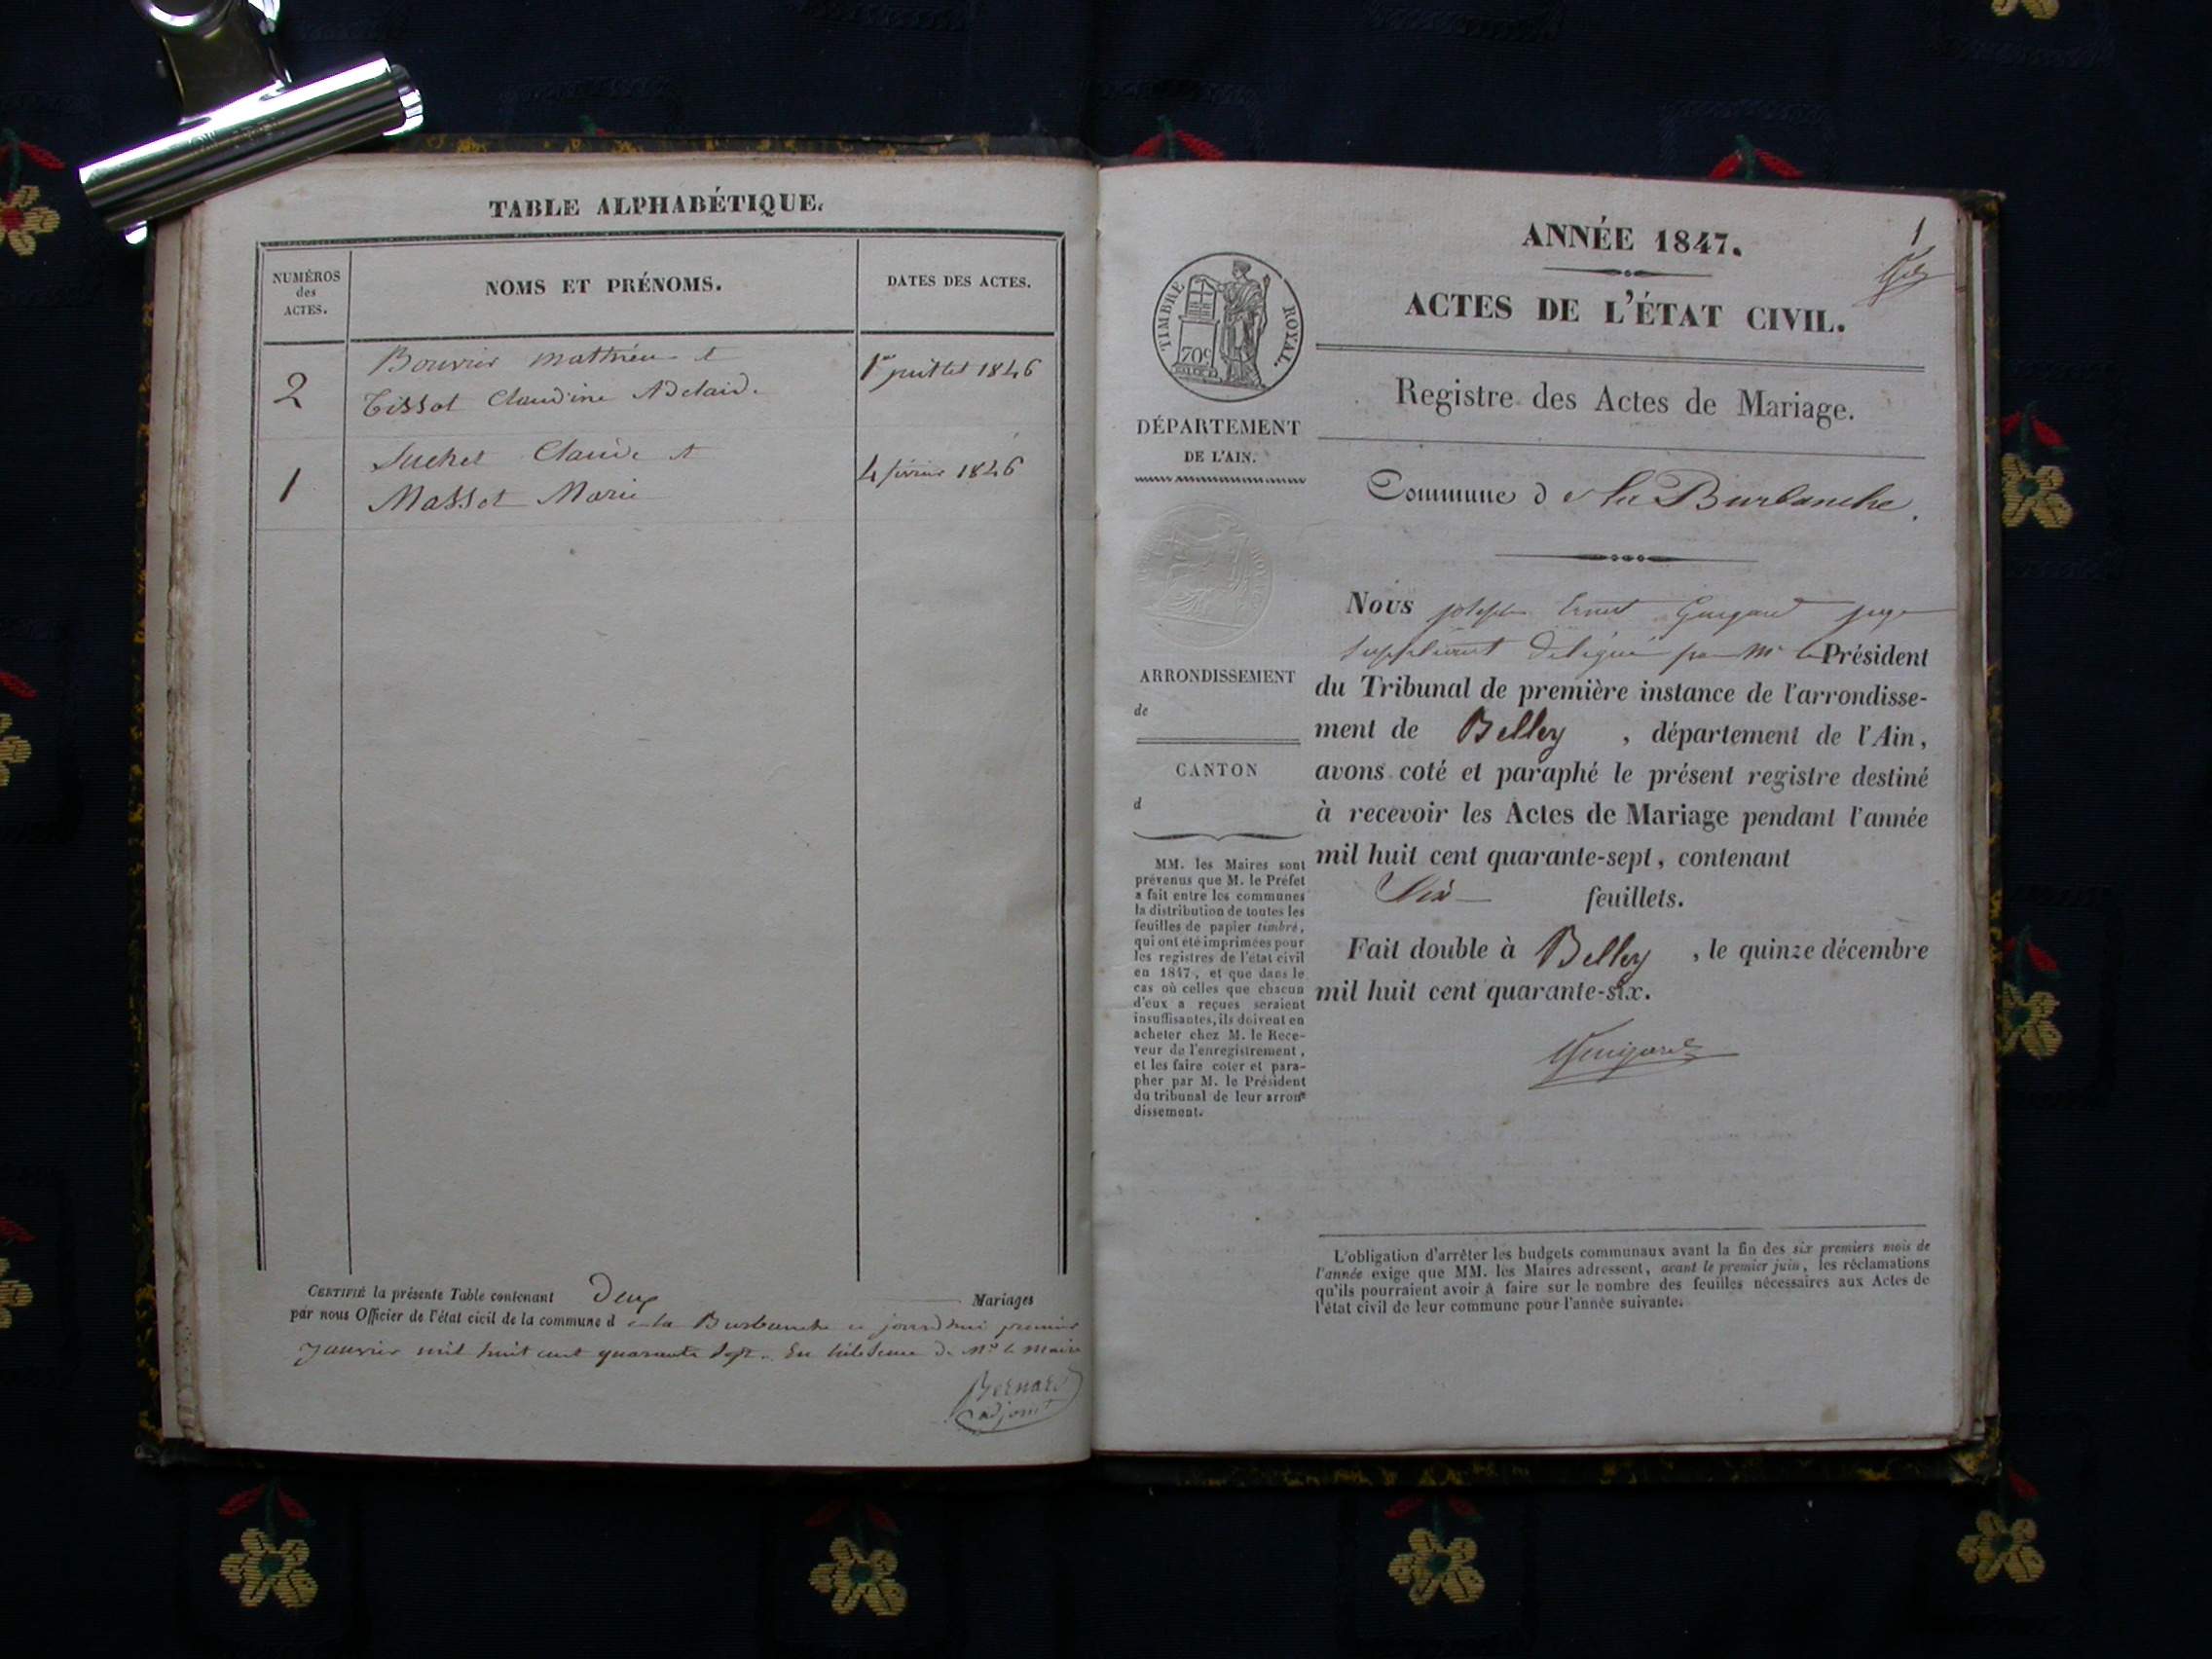 TABLE ALPHABÉTIQUE.
NUMÉROS
des
ACTES.
NOMS ET PRÉNOMS.
DATES DES ACTES.
2
Bouvier Mathieu et
Tissot Claudine Adelaid.
1er juillet 1846
1
Suchet Claude et
Masset Marie
4 février 1846
CERTIFIÉ la présente Table contenant Deux Mariages
par nous Officier de l'état civil de la commune d e la Burbanche ce jourd'hui premier
Janvier mil huit cent quarante sept. En de Mr le Maire
Bernard
adjoint
1
ANNÉE 1847.
ACTES DE L'ÉTAT CIVIL.
TIMBRE ROYAL.
70c
Registre des Actes de Mariage.
DÉPARTEMENT
DE L'AIN.
Commune d e la Burbanche.
ARRONDISSEMENT
de
CANTON
d
MM. les Maires sont
prévenus que M. le Préfet
a fait entre les communes
la distribution de toutes les
feuilles de papier timbré,
qui ont été imprimées pour
les registres de l'état civil
en 1847, et que dans le
cas où celles que chacun
d'eux a reçues seraient
insuffisantes, ils doivent en
acheter chez M. le Rece-
veur de l'enregistrement,
et les faire coter et para-
pher par M. le Président
du tribunal de leur arron-
dissement.
Nous joseph Ernest Guigard juge
suppléant délégué par Mr le Président
du Tribunal de première instance de l'arrondisse-
ment de Belley , département de l'Ain,
avons coté et paraphé le présent registre destiné
à recevoir les Actes de Mariage pendant l'année
mil huit cent quarante-sept, contenant
Six feuillets.
Fait double à Belley , le quinze décembre
mil huit cent quarante-six.
Guigard
L'obligation d'arrêter les budgets communaux avant la fin des six premiers mois de
l'année exige que MM. les Maires adressent, avant le premier juin, les réclamations
qu'ils pourraient avoir à faire sur le nombre des feuilles nécessaires aux Actes de
l'état civil de leur commune pour l'année suivante.